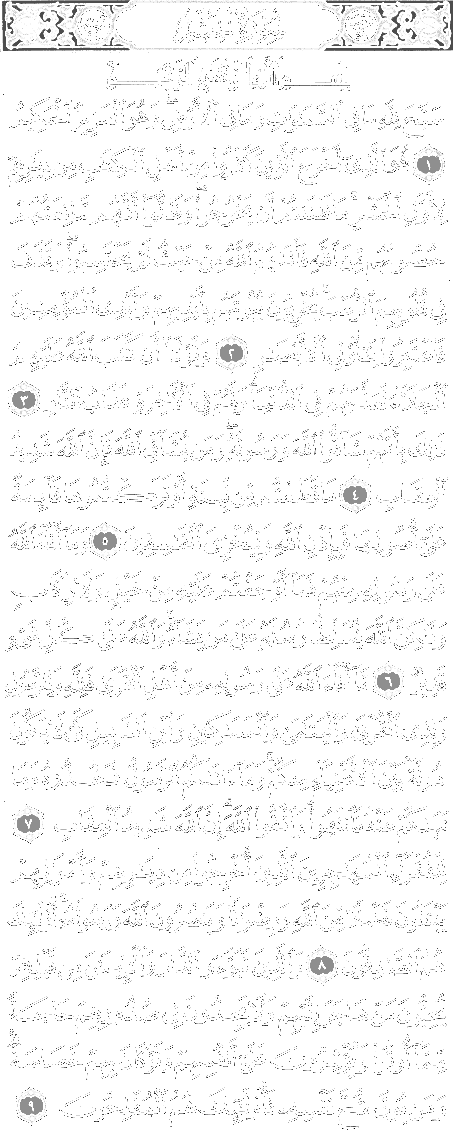 سُورَةُ الحَشْرِ
بِسْمِ اللَّهِ الرَّحْمَٰنِ الرَّحِيمِ
سَبَّحَ لِلَّهِ مَا فِي السَّمَٰوَٰتِ وَمَا فِي الْأَرْضِ وَهُوَ الْعَزِيزُ الْحَكِيمُ
١ هُوَ الَّذِي أَخْرَجَ الَّذِينَ كَفَرُوا مِنْ أَهْلِ الْكِتَٰبِ مِن دِيَٰرِهِمْ
لِأَوَّلِ الْحَشْرِ مَا ظَنَنتُمْ أَن يَخْرُجُوا وَظَنُّوا أَنَّهُم مَّانِعَتُهُمْ
حُصُونُهُم مِّنَ اللَّهِ فَأَتَىٰهُمُ اللَّهُ مِنْ حَيْثُ لَمْ يَحْتَسِبُوا وَقَذَفَ
فِي قُلُوبِهِمُ الرُّعْبَ يُخْرِبُونَ بُيُوتَهُم بِأَيْدِيهِمْ وَأَيْدِي الْمُؤْمِنِينَ
فَاعْتَبِرُوا يَٰأُولِي الْأَبْصَٰرِ ٢ وَلَوْلَا أَن كَتَبَ اللَّهُ عَلَيْهِمُ
الْجَلَاءَ لَعَذَّبَهُمْ فِي الدُّنْيَا وَلَهُمْ فِي الْآخِرَةِ عَذَابُ النَّارِ ٣
ذَٰلِكَ بِأَنَّهُمْ شَاقُّوا اللَّهَ وَرَسُولَهُ وَمَن يُشَاقِّ اللَّهَ فَإِنَّ اللَّهَ شَدِيدُ
الْعِقَابِ ٤ مَا قَطَعْتُم مِّن لِّينَةٍ أَوْ تَرَكْتُمُوهَا قَائِمَةً
عَلَىٰ أُصُولِهَا فَبِإِذْنِ اللَّهِ وَلِيُخْزِيَ الْفَٰسِقِينَ ٥ وَمَا أَفَاءَ اللَّهُ
عَلَىٰ رَسُولِهِ مِنْهُمْ فَمَا أَوْجَفْتُمْ عَلَيْهِ مِنْ خَيْلٍ وَلَا رِكَابٍ
وَلَٰكِنَّ اللَّهَ يُسَلِّطُ رُسُلَهُ عَلَىٰ مَن يَشَاءُ وَاللَّهُ عَلَىٰ كُلِّ شَيْءٍ
قَدِيرٌ ٦ مَّا أَفَاءَ اللَّهُ عَلَىٰ رَسُولِهِ مِنْ أَهْلِ الْقُرَىٰ فَلِلَّهِ وَلِلرَّسُولِ
وَلِذِي الْقُرْبَىٰ وَالْيَتَٰمَىٰ وَالْمَسَٰكِينِ وَابْنِ السَّبِيلِ كَيْ لَا يَكُونَ
دُولَةً بَيْنَ الْأَغْنِيَاءِ مِنكُمْ وَمَا آتَىٰكُمُ الرَّسُولُ فَخُذُوهُ وَمَا
نَهَىٰكُمْ عَنْهُ فَانتَهُوا وَاتَّقُوا اللَّهَ إِنَّ اللَّهَ شَدِيدُ الْعِقَابِ ٧
لِلْفُقَرَاءِ الْمُهَٰجِرِينَ الَّذِينَ أُخْرِجُوا مِن دِيَٰرِهِمْ وَأَمْوَٰلِهِمْ
يَبْتَغُونَ فَضْلًا مِّنَ اللَّهِ وَرِضْوَٰنًا وَيَنصُرُونَ اللَّهَ وَرَسُولَهُ أُولَٰئِكَ
هُمُ الصَّٰدِقُونَ ٨ وَالَّذِينَ تَبَوَّءُو الدَّارَ وَالْإِيمَٰنَ مِن قَبْلِهِمْ
يُحِبُّونَ مَنْ هَاجَرَ إِلَيْهِمْ وَلَا يَجِدُونَ فِي صُدُورِهِمْ حَاجَةً
مِّمَّا أُوتُوا وَيُؤْثِرُونَ عَلَىٰ أَنفُسِهِمْ وَلَوْ كَانَ بِهِمْ خَصَاصَةٌ
وَمَن يُوقَ شُحَّ نَفْسِهِ فَأُولَٰئِكَ هُمُ الْمُفْلِحُونَ ٩